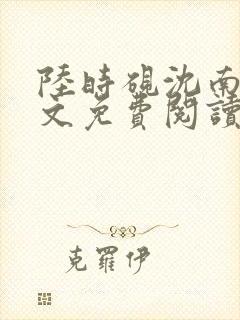 陸時硯沈南
文免費閱讀
克羅伊